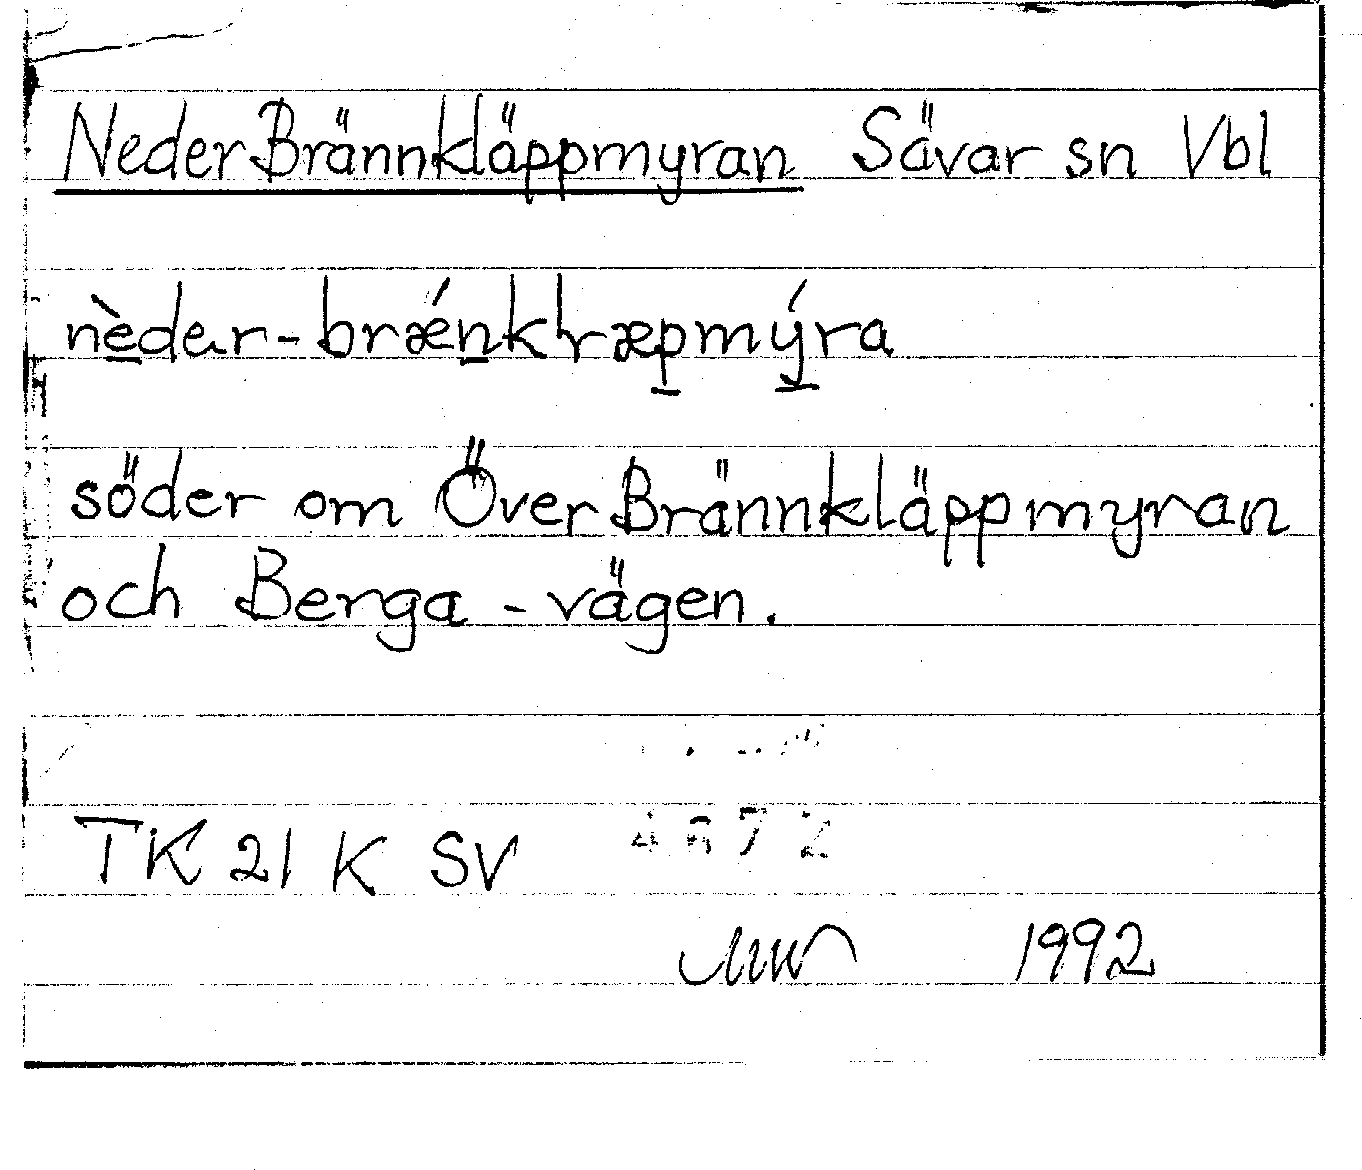 NederBrännkläppmyran Sävar sn Vbl
nèdar-brǽnklræpmýra
söder om ÖverBrännkläppmyran
och Berga-vägen.
4672
TK 21 K SV
1992